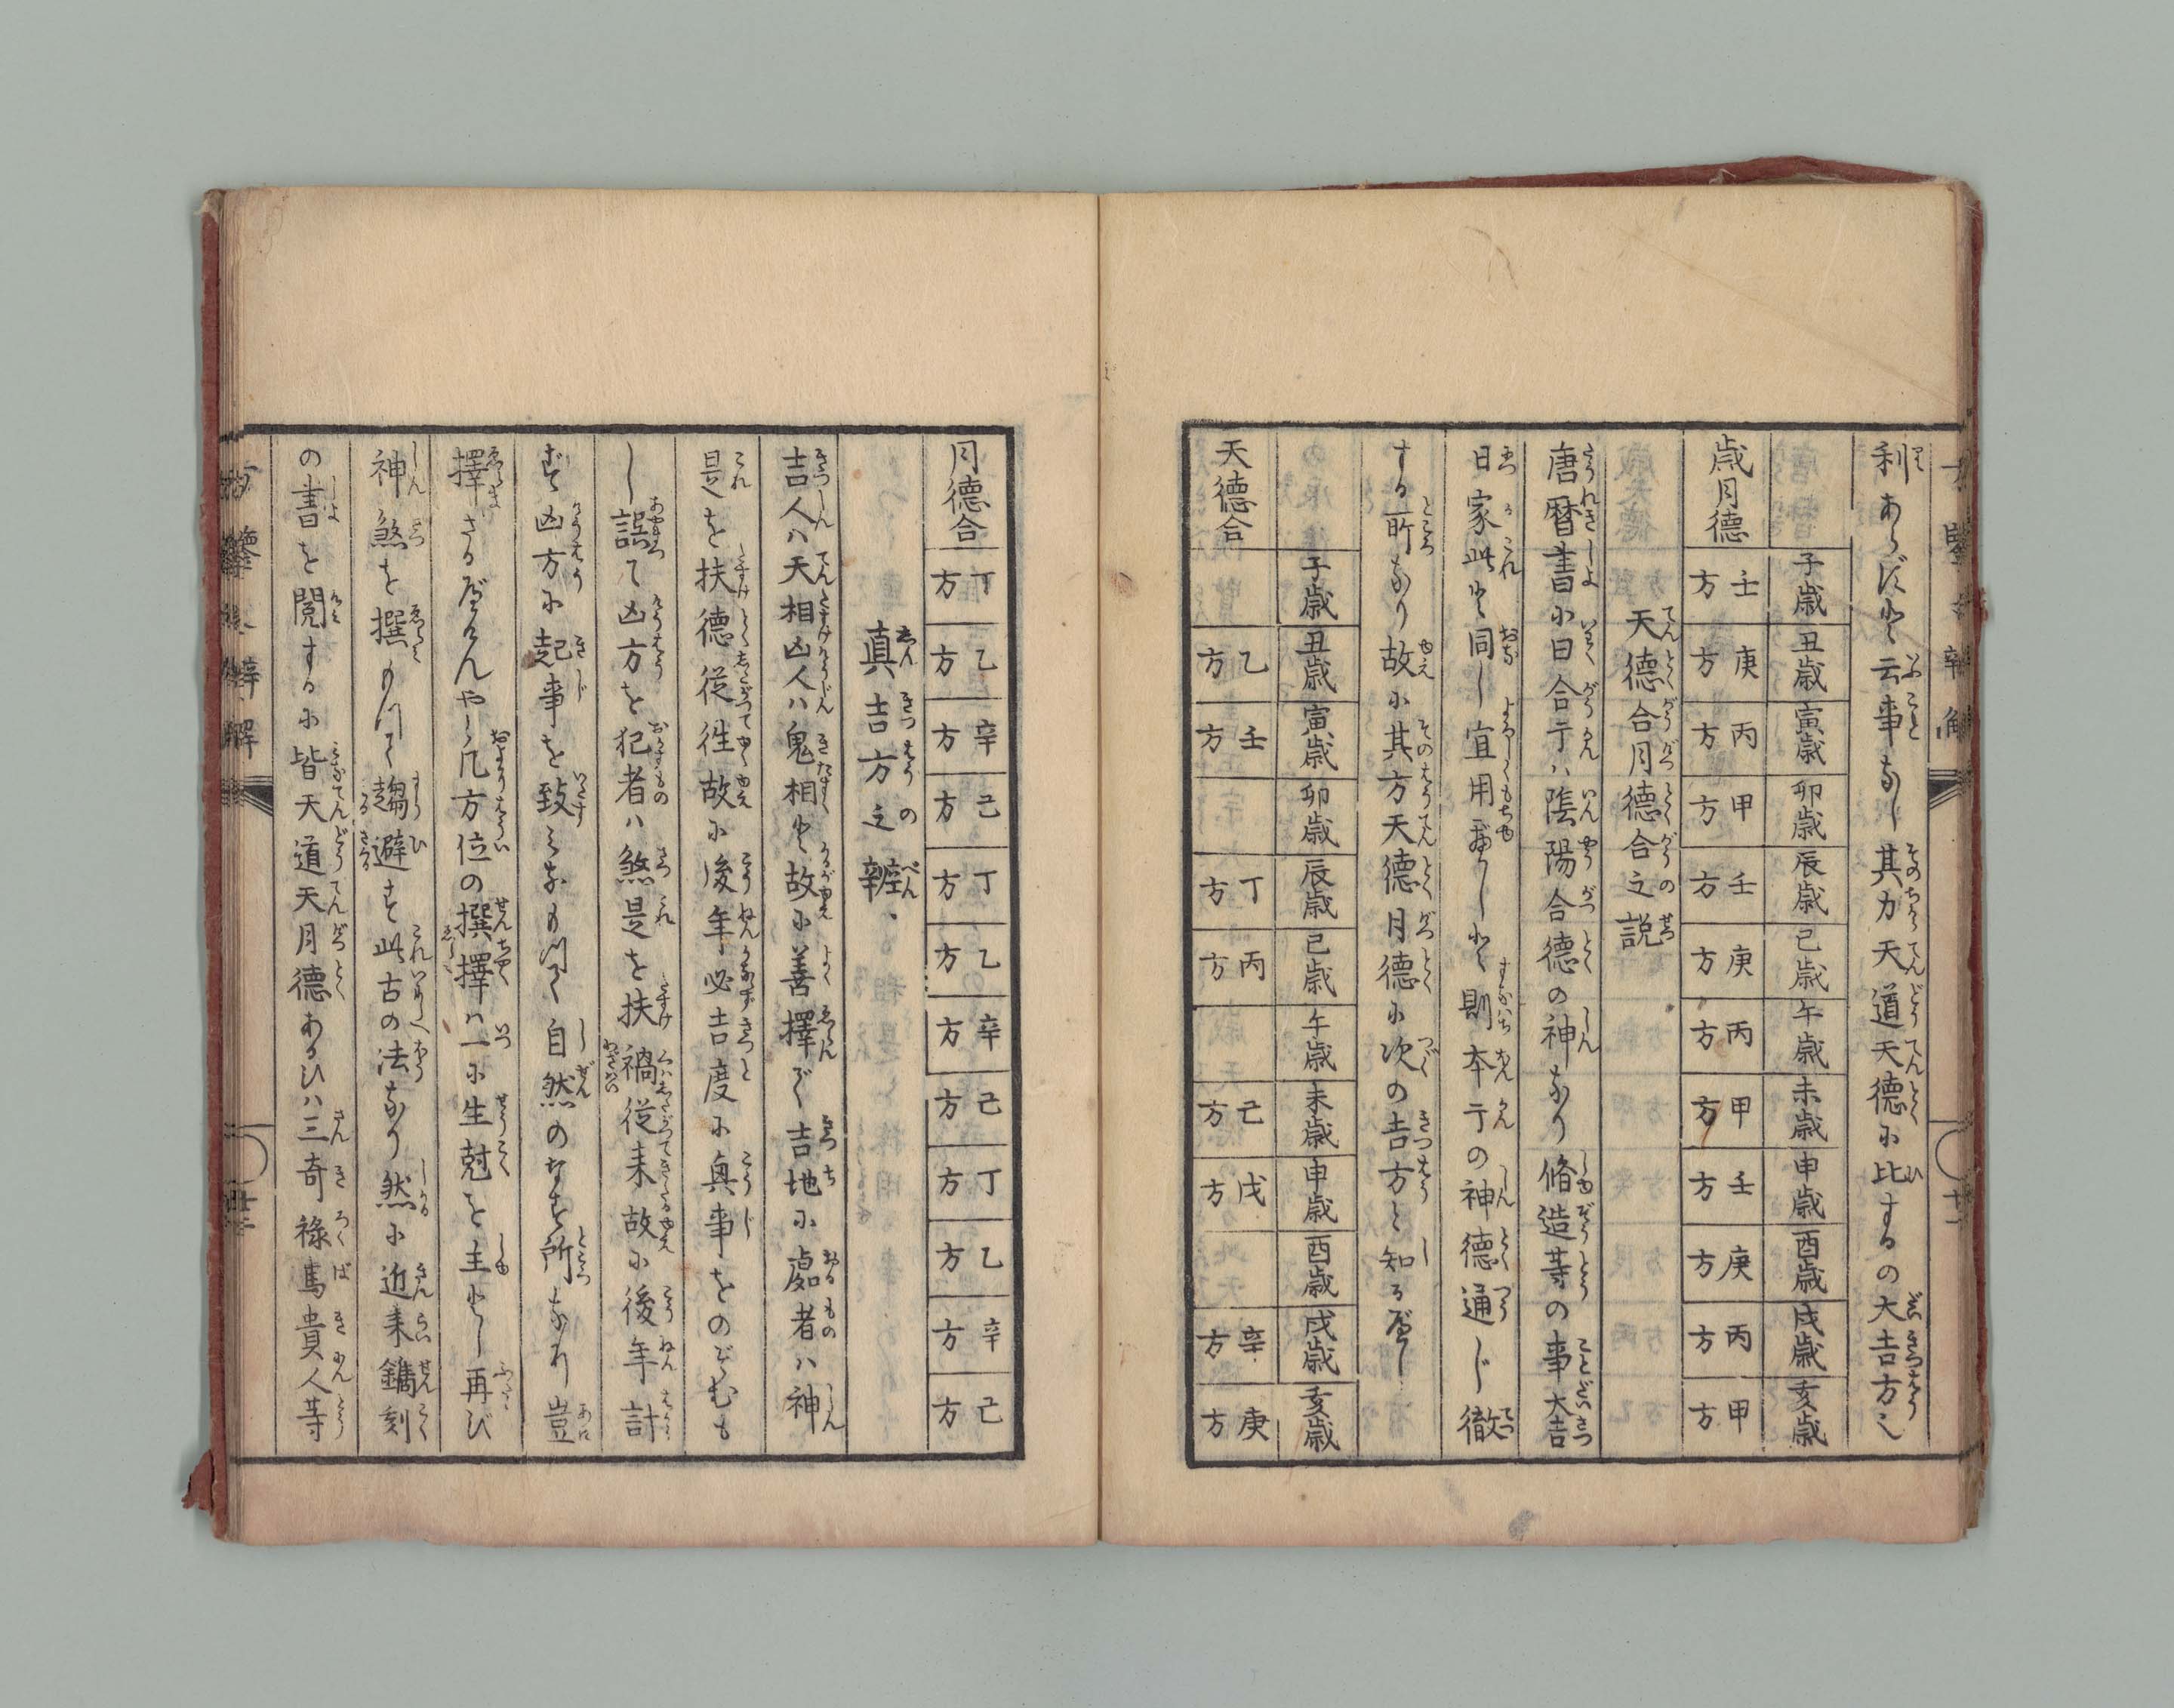 利あらずと云事なし其力天道天德に比するの大吉方之
子歳 丑歳 寅歳 卯歳 辰歳 巳歳 午歳 未歳 申歳 酉歳 戌歳 亥歳
歳月德 壬方 庚方 丙方 甲方 壬方 庚方 丙方 甲方 壬方 庚方 丙方 甲方
天德合月德合之説
唐暦書に曰合干ハ陰陽合德の神なり脩造等の事大吉
日家此と同し宜用べしと則本干の神德通じ徹
する所なり故に其方天德月德に次の吉方と知るべし
子歳 丑歳 寅歳 卯歳 辰歳 巳歳 午歳 未歳 申歳 酉歳 戌歳 亥歳
天德合 乙方 壬方 丁方 丙方 己方 戊方 辛方 庚方
月德合 丁方 乙方 辛方 己方 丁方 乙方 辛方 己方 丁方 乙方 辛方 己方
真吉方之辯
吉人ハ天相凶人ハ鬼相と故に善擇で吉地に處者ハ神
是を扶德從徃故に後年必吉度に興事をのぞむも
し誤て凶方を犯者ハ煞是を扶禍從来故に後年計
ず凶方に起事を致みなもつて自然のなす所なり豈
擇ざるべけんや凡方位の撰擇ハ一に生尅を主とし再び
神煞を撰もつて趨避す此古の法なり然に近来鐫刻
の書を閲するに皆天道天月德あるひハ三奇祿馬貴人等